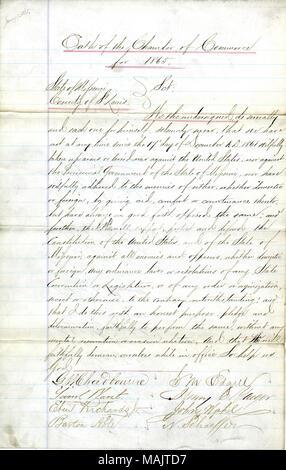 Oath of the Chamber of Commerce
for 1865.
State of Missouri } Sct.
County of St Louis
We the undersigned, do severally
and each one for himself solemnly swear, that we have
not at any time since the 17th day of December A.D. 1861 wilfully
taken up arms or levied war against the United States, nor against
the Provisional Government of the State of Missouri, nor have
wilfully adhered to the enemies of either, whether domestic
or foreign, by giving aid, comfort or countenance thereto,
but have always in good faith opposed the same; and
further, that I will support, protect and defend the
Constitution of the United States and of the State of
Missouri, against all enemies and opposers, whether domestic
or foreign, any ordinance, law or resolution of any State
Convention or Legislature, or of any order or organization,
secret or otherwise, to the contrary notwithstanding; and
that I do this with an honest purpose, pledge and
determination, faithfully to perform the same, without any
mental reservation or evasion whatever. And that I will
faithfully demean ourselves while in office So help us
God.
E. M. Edgell
John Wahl
Barton Able
N. Schaeffer
alamy
Image ID: MAJTD7
www.alamy.com